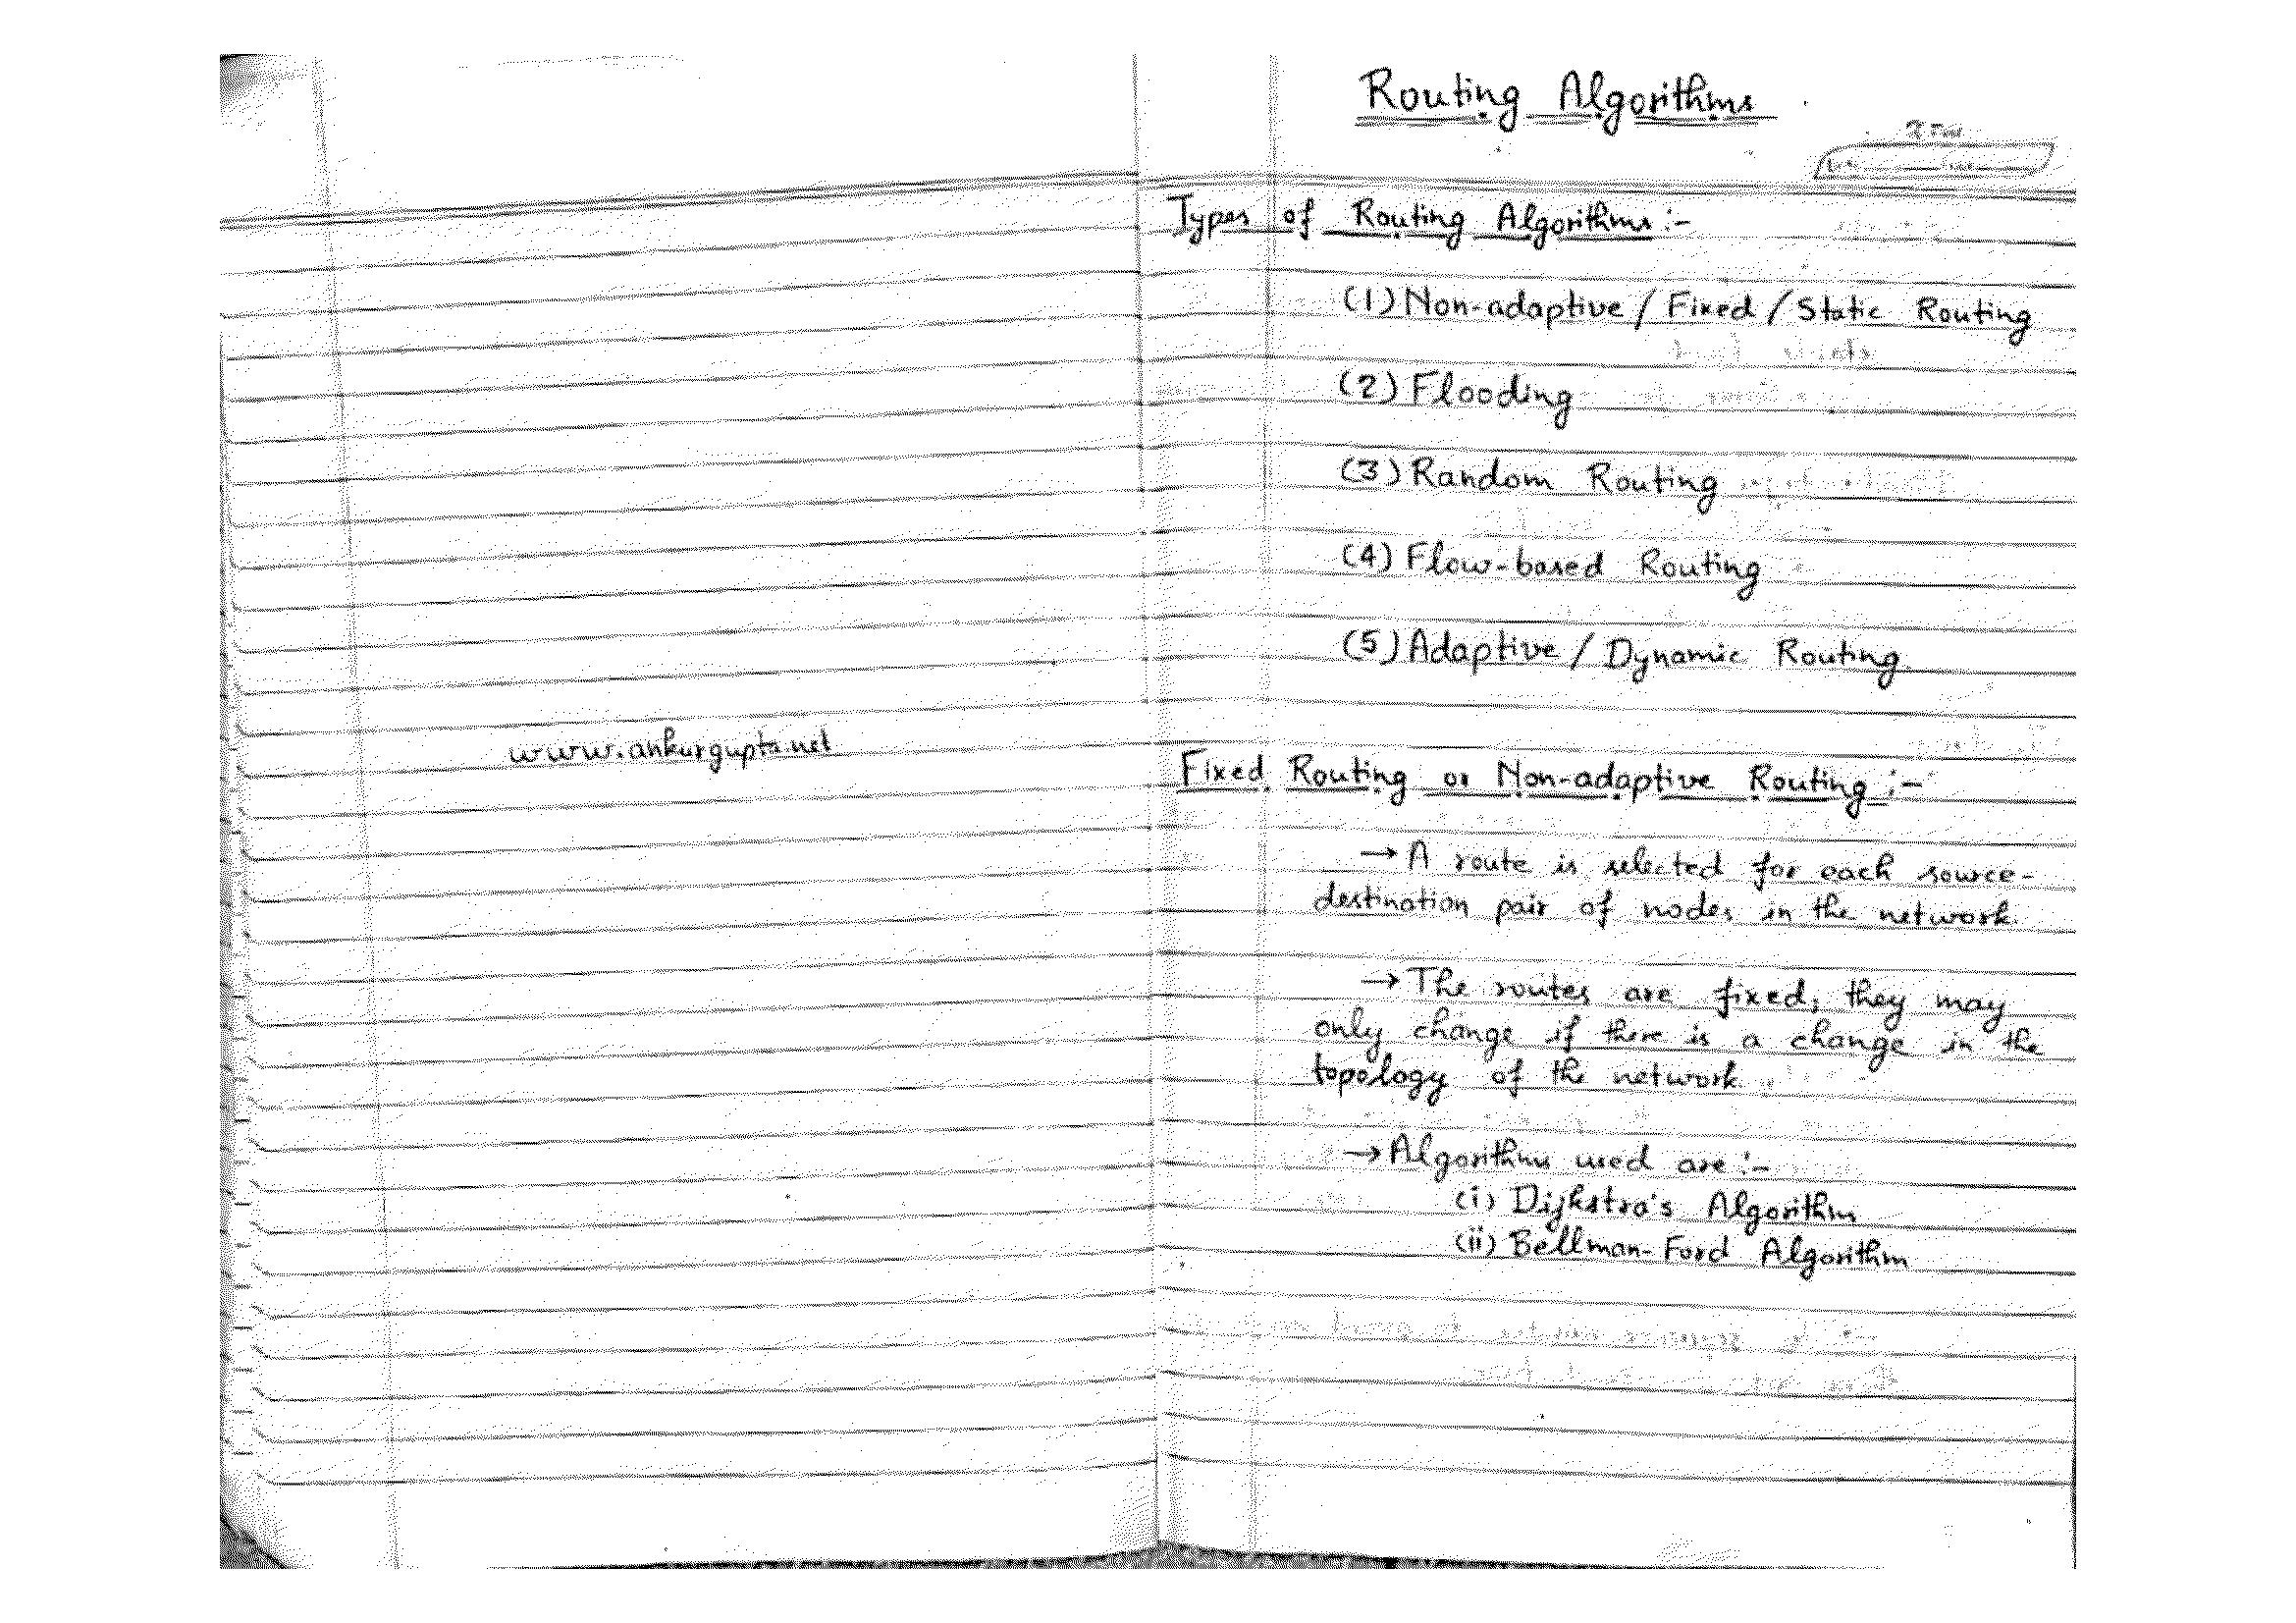 www.ankurgupta.net
Routing Algorithms
Types of Routing Algorithms :-
(1) Non-adaptive / Fixed / Static Routing
(2) Flooding
(3) Random Routing
(4) Flow-based Routing
(5) Adaptive / Dynamic Routing
Fixed Routing or Non-adaptive Routing :-
→ A route is selected for each source-
destination pair of nodes in the network.
→ The routes are fixed, they may
only change if there is a change in the
topology of the network.
→ Algorithms used are :-
(i) Dijkstra's Algorithm
(ii) Bellman-Ford Algorithm